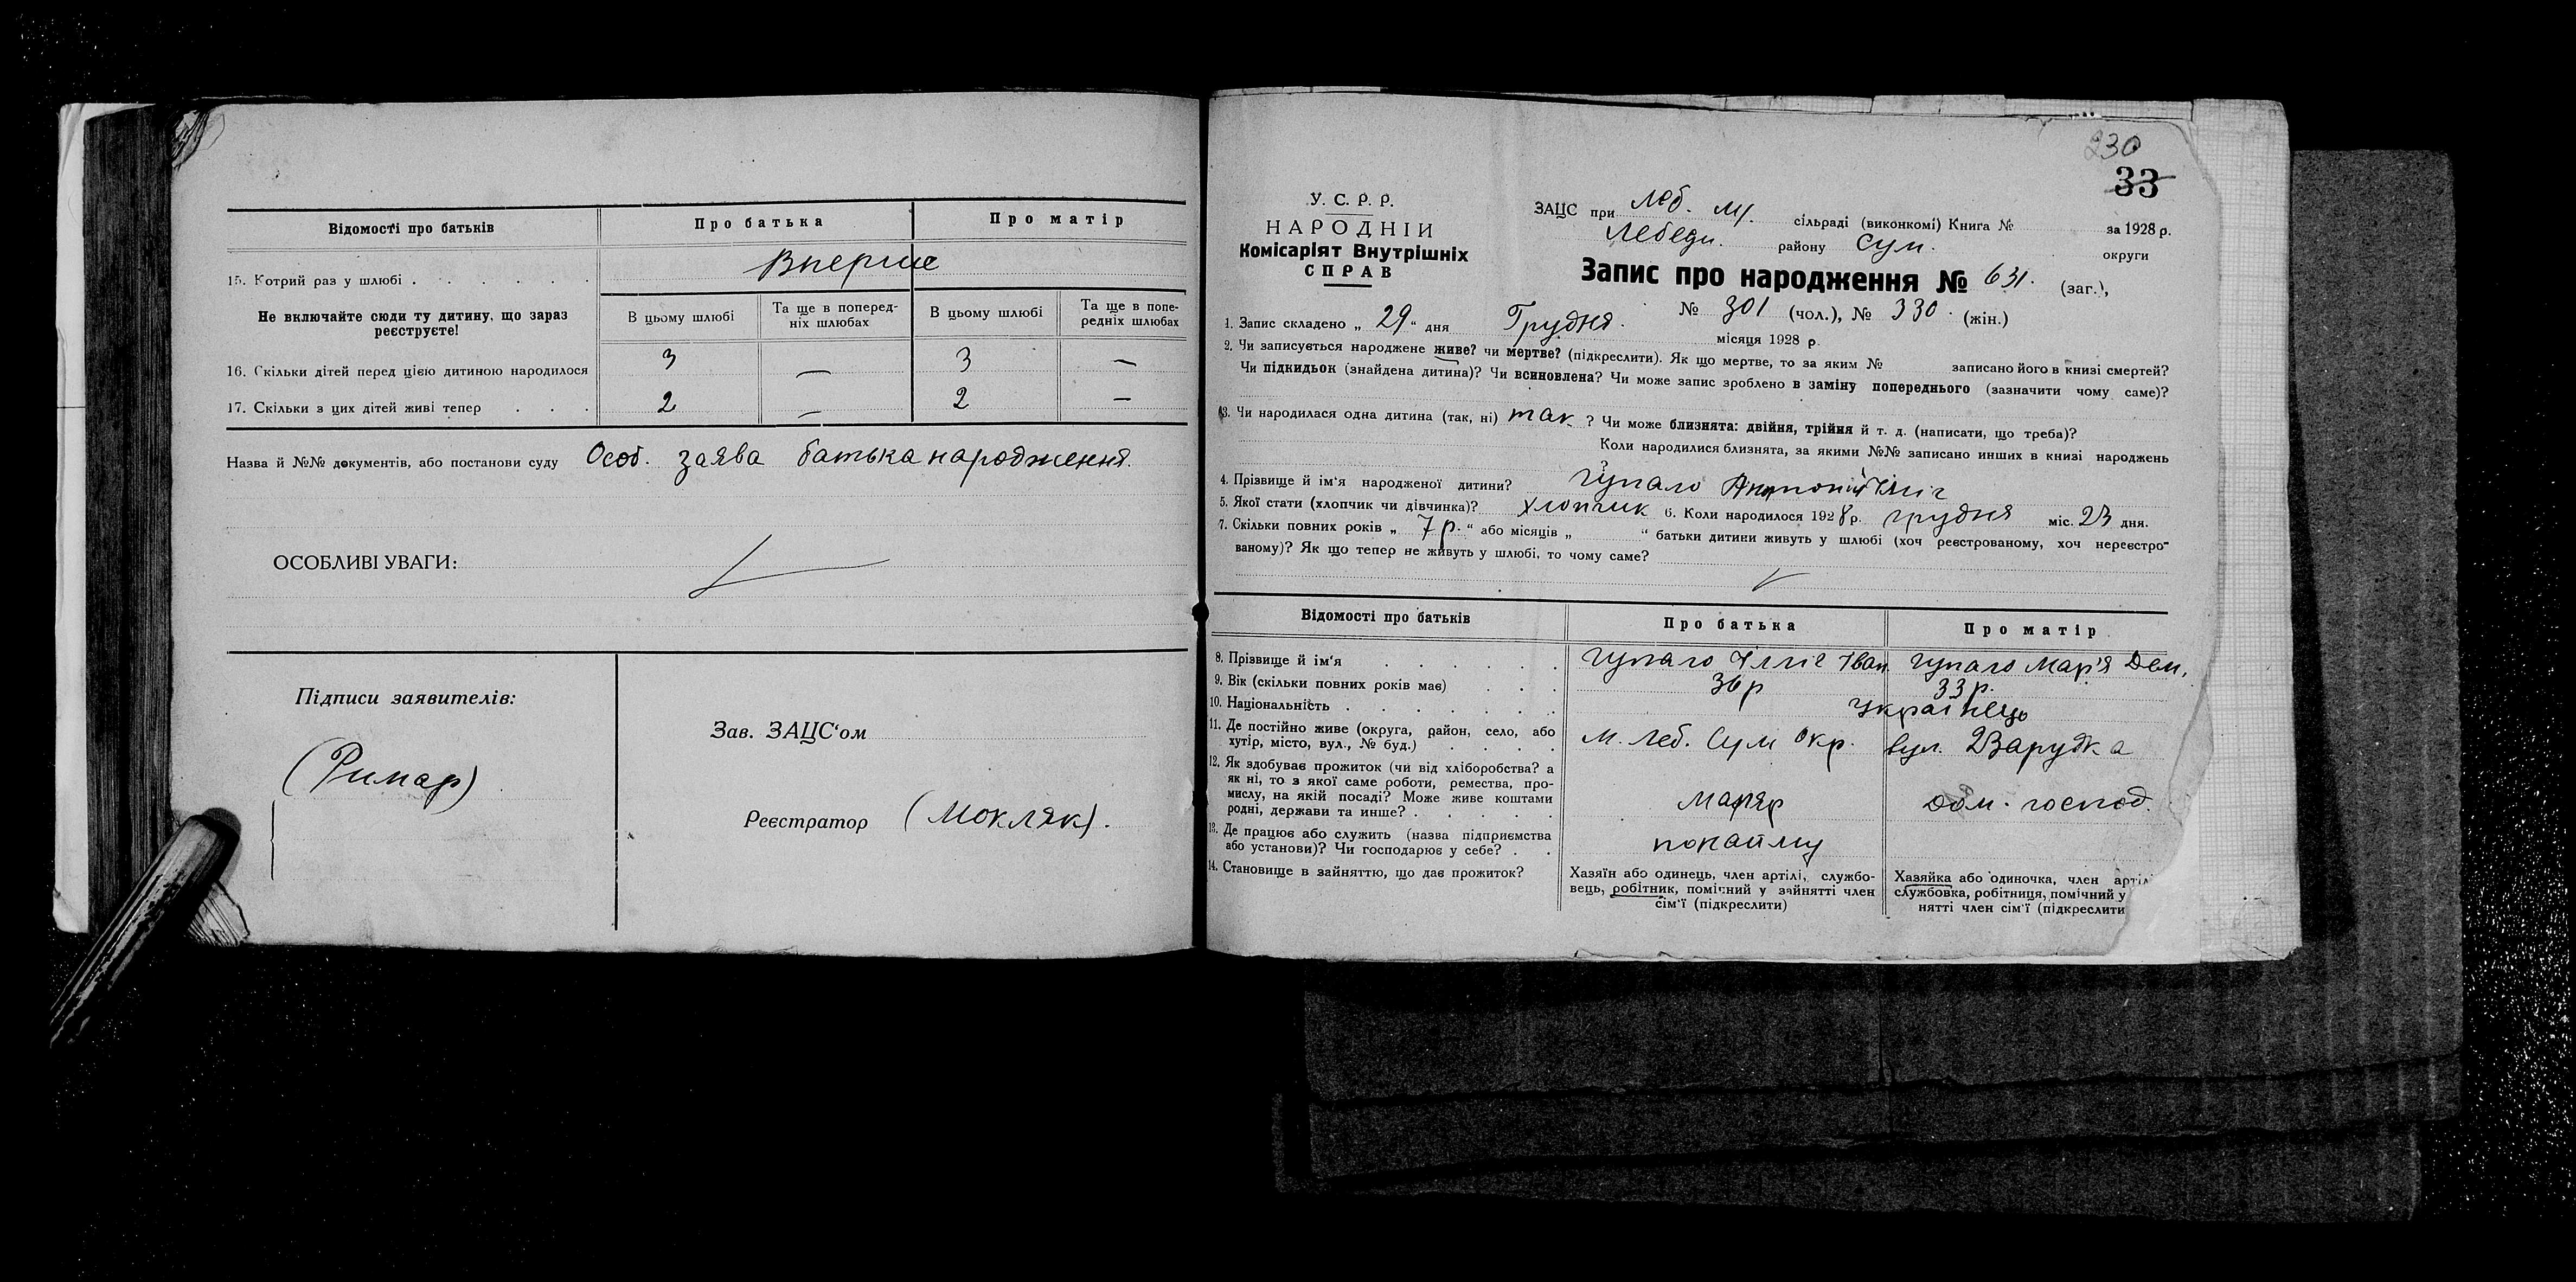 Відомості про батьків
Про батька
Про матір
15. Котрий раз у шлюбі
Вперше
Не включайте сюди ту дитину, що зараз реєструєте!
В цьому шлюбі
Та ще в попередніх шлюбах
В цьому шлюбі
Та ще в попередніх шлюбах
16. Скільки дітей перед цією дитиною народилося 3 — 3 —
17. Скільки з цих дітей живі тепер 2 — 2 —
Назва й №№ документів, або постанови суду Особ. заява батька народження.
ОСОБЛИВІ УВАГИ:
Підписи заявителів:
(Римар)
Зав. ЗАЦС'ом
Реєстратор (Мокляк).
230
33
У. С. Р. Р.
НАРОДНІЙ
Комісаріят Внутрішніх
СПРАВ
ЗАЦС при Леб. М. сільраді (виконкомі) Книга № за 1928 р.
Лебеди. району Сум. округи
Запис про народження № 631. (заг.),
№ 301 (чол.), № 330. (жін.)
1. Запис складено „ 29 “ дня Грудня. місяця 1928 р.
2. Чи записується народжене живе? чи мертве? (підкреслити). Як що мертве, то за яким № записано його в книзі смертей?
Чи підкидьок (знайдена дитина)? Чи всиновлена? Чи може запис зроблено в заміну попереднього (зазначити чому саме)?
3. Чи народилася одна дитина (так, ні) так ? Чи може близнята: двійня, трійня й т. д. (написати, що треба)?
Коли народилися близнята, за якими №№ записано инших в книзі народжень
4. Прізвище й ім'я народженої дитини? Гупало
5. Якої стати (хлопчик чи дівчинка)? хлопчик 6. Коли народилося 1928 р. грудня міс. 23 дня.
7. Скільки повних років „ 7 р. “ або місяців „ “ батьки дитини живуть у шлюбі (хоч реєстрованому, хоч нереєстро-
ваному)? Як що тепер не живуть у шлюбі, то чому саме?
Відомості про батьків
Про батька
Про матір
8. Прізвище й ім'я
Гупало Ілліє Іван
Гупало Мар'я Дем.
9. Вік (скільки повних років має)
36 р
33 р.
10. Національність
Українець
11. Де постійно живе (округа, район, село, або
хутір, місто, вул., № буд.)
М. Леб. Сум Окр.
вул.
12. Як здобуває прожиток (чи від хліборобства? а
як ні, то з якої саме роботи, ремества, про-
мислу, на якій посаді? Може живе коштами
родні, держави та инше?
маляр
дом. господ.
13. Де працює або служить (назва підприємства
або установи)? Чи господарює у себе?
понайму
14. Становище в зайняттю, що дає прожиток?
Хазяїн або одинець, член артілі, службо-
вець, робітник, помічний у зайнятті член
сім'ї (підкреслити)
Хазяйка або одиночка, член артілі
службовка, робітниця, помічний у
нятті член сім'ї (підкреслити